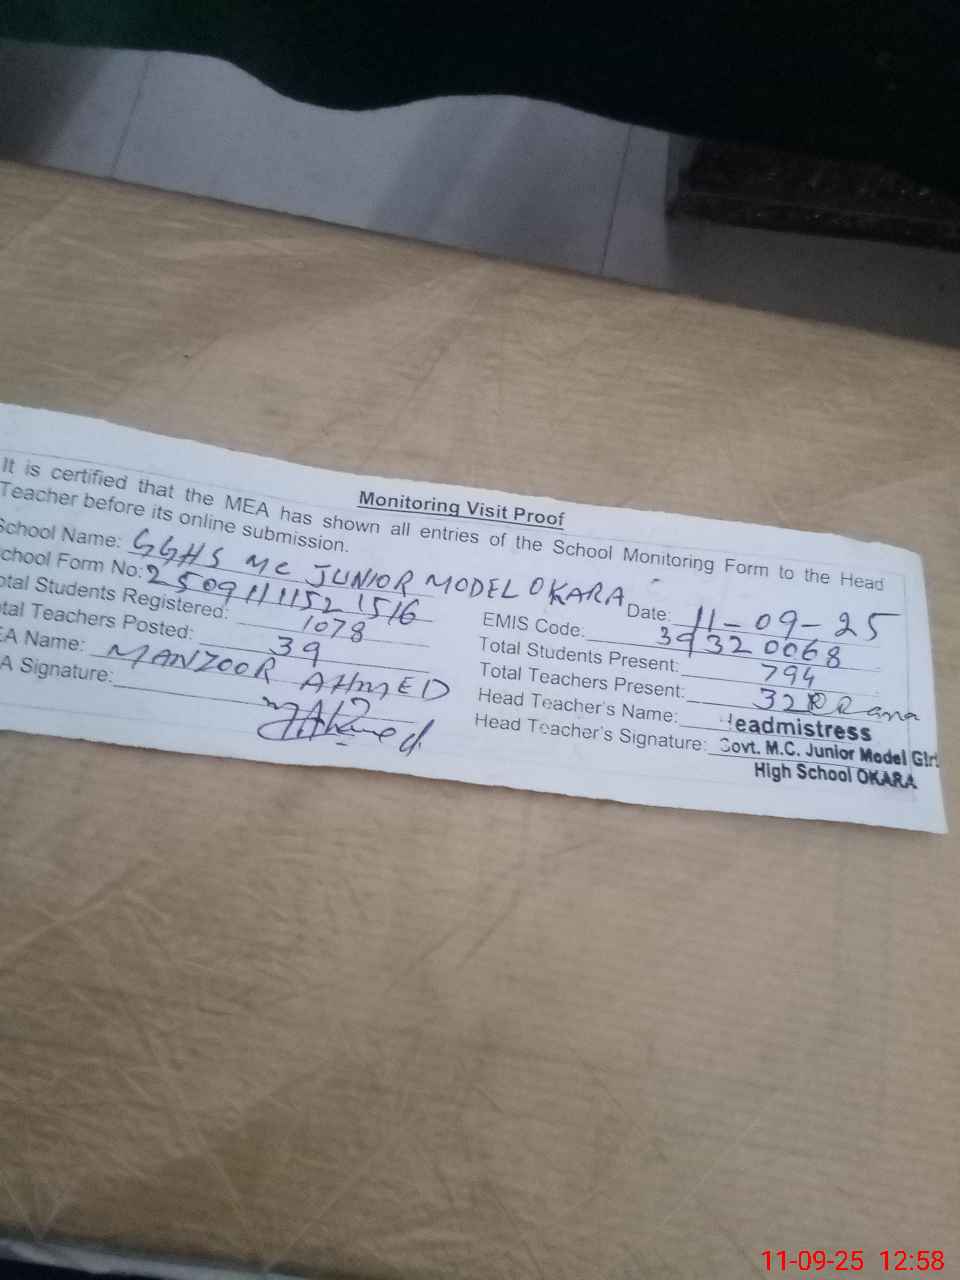 Monitoring Visit Proof
It is certified that the MEA has shown all entries of the School Monitoring Form to the Head
Teacher before its online submission.
School Name: GGHS MC JUNIOR MODEL OKARA
chool Form No: 2509111521516
Date: 11-09-25
otal Students Registered: 1078
EMIS Code: 39320068
otal Teachers Posted: 39
Total Students Present: 794
EA Name: MANZOOR AHMED
Total Teachers Present: 32
A Signature:
Head Teacher's Name:
Headmistress
Head Teacher's Signature:
Govt. M.C. Junior Model Girl
High School OKARA
11-09-25 12:58